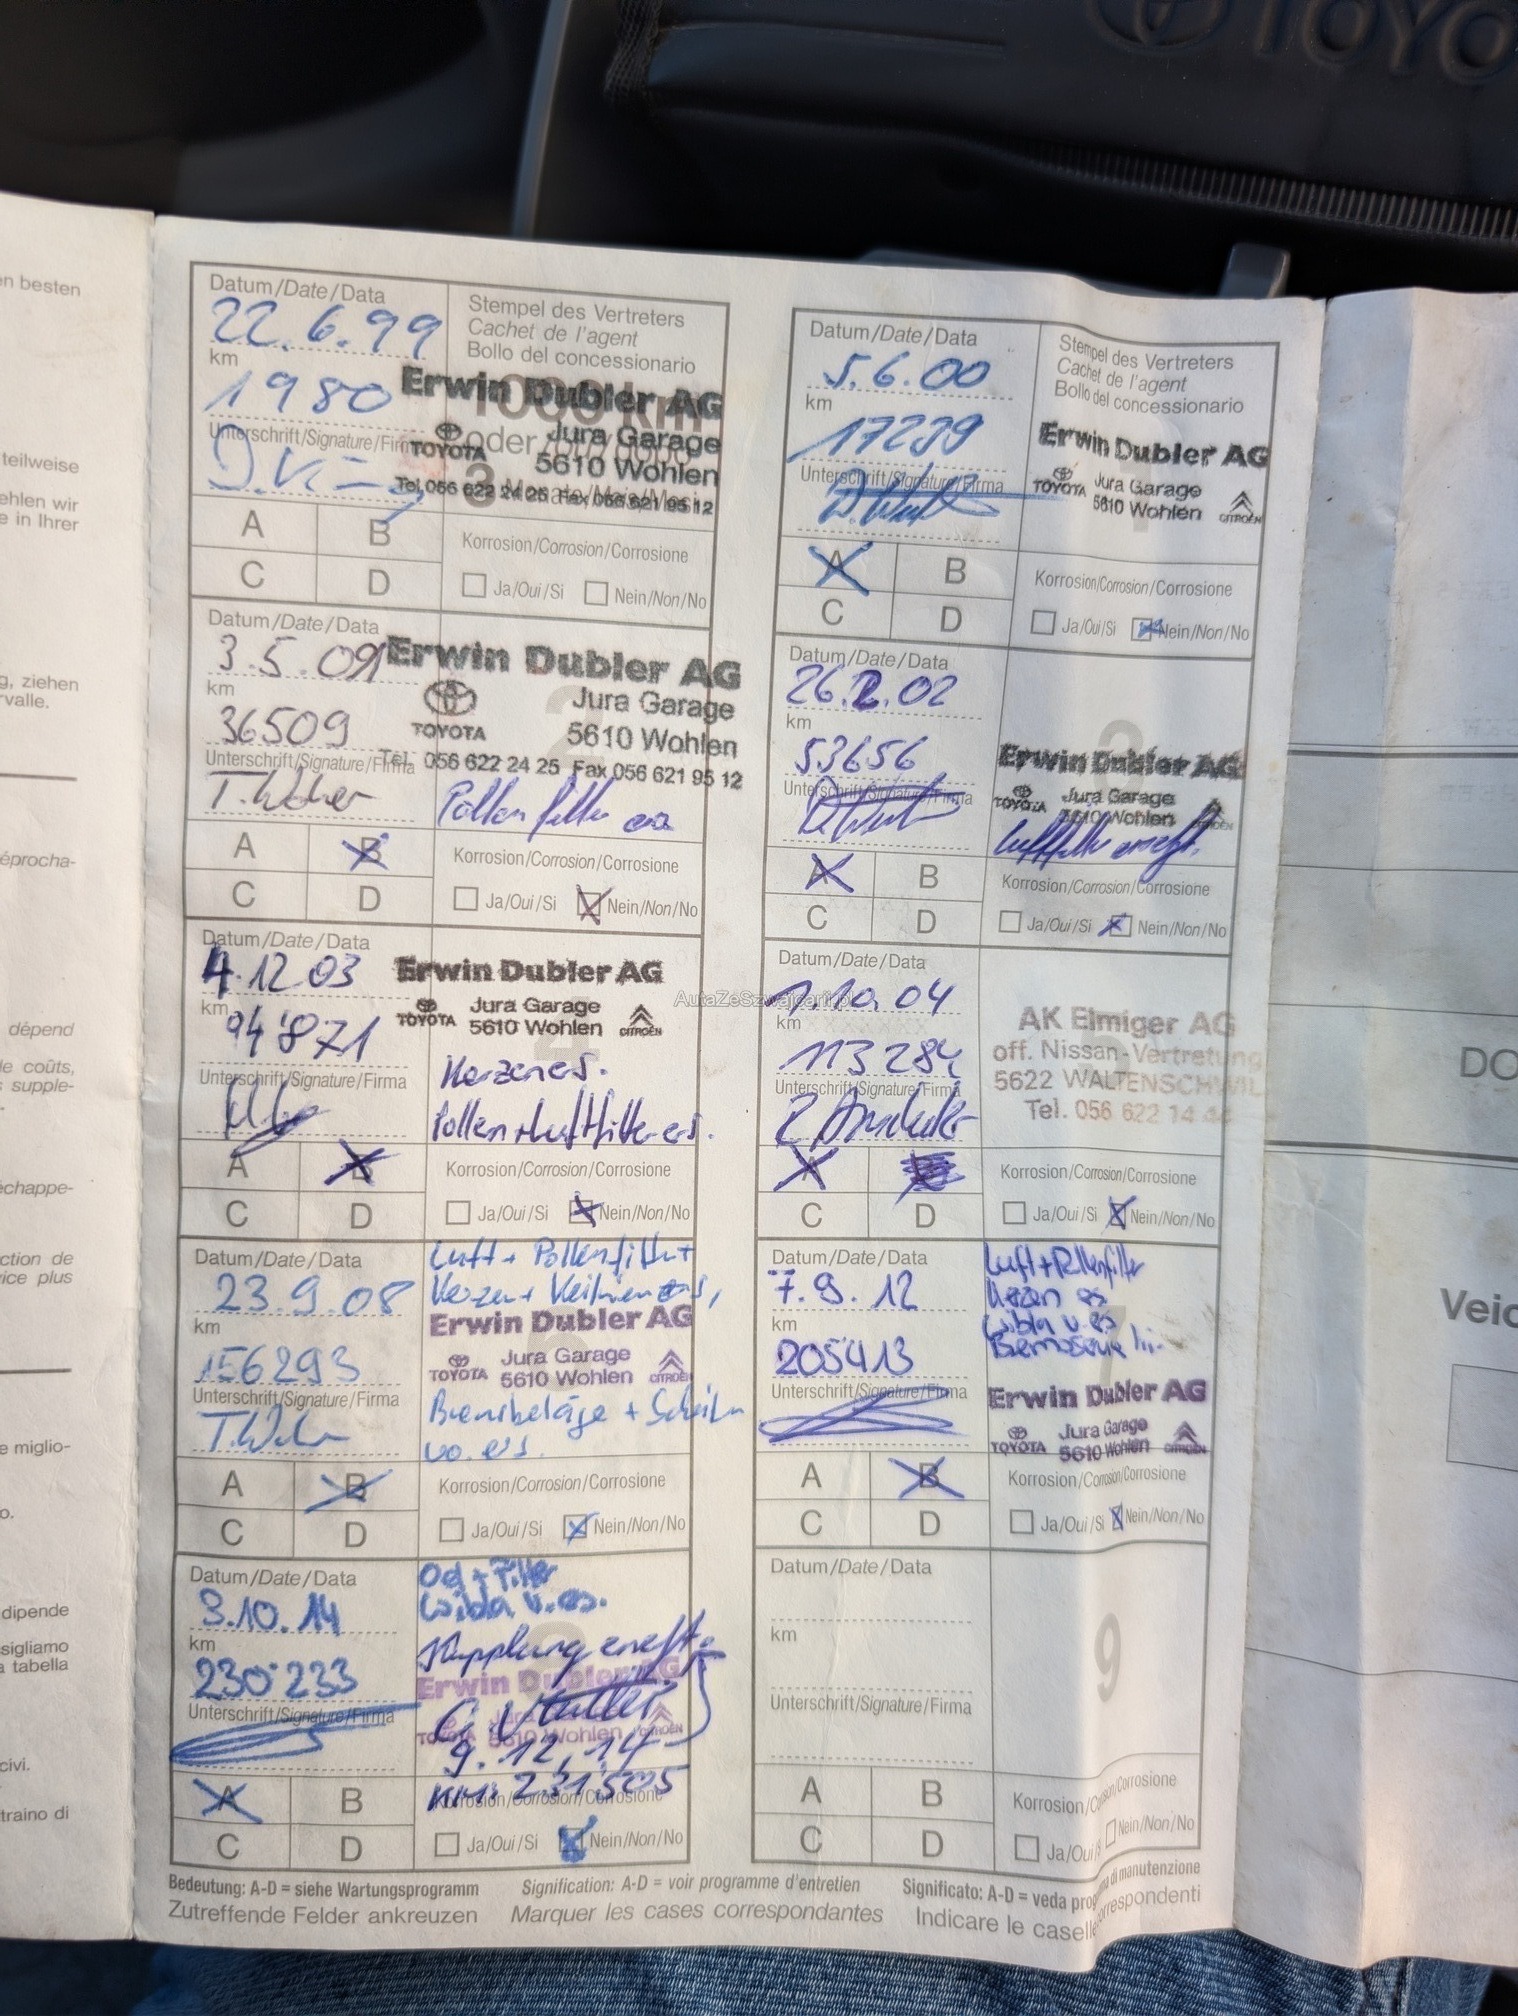 TOYO
en besten
teilweise
ehlen wir
e in Ihrer
g, ziehen
rvalle.
éprocha-
dépend
le coûts,
s supple-
échappe-
ction de
vice plus
e miglio-
o.
dipende
sigliamo
a tabella
civi.
traino di
Datum/Date/Data
22.6.99
km
1980
Unterschrift/Signature/Firma
Stempel des Vertreters
Cachet de l'agent
Bollo del concessionario
1000 km
oder/ou/
3
Erwin Dubler AG
TOYOTA Jura Garage
5610 Wohlen
Tel. 056 622 24 25 Fax 056 621 95 12
A B
C D
Korrosion/Corrosion/Corrosione
Ja/Oui/Si Nein/Non/No
Datum/Date/Data
5.6.00
km
17239
Unterschrift/Signature/Firma
Stempel des Vertreters
Cachet de l'agent
Bollo del concessionario
Erwin Dubler AG
TOYOTA Jura Garage
5610 Wohlen CITROËN
A B
C D
Korrosion/Corrosion/Corrosione
Ja/Oui/Si Nein/Non/No
Datum/Date/Data
3.5.01
km
36509
Unterschrift/Signature/Firma
2
Erwin Dubler AG
TOYOTA Jura Garage
5610 Wohlen
Tel. 056 622 24 25 Fax 056 621 95 12
Pollenfilter
A B
C D
Korrosion/Corrosion/Corrosione
Ja/Oui/Si Nein/Non/No
Datum/Date/Data
26.2.02
km
53656
Unterschrift/Signature/Firma
3
Erwin Dubler AG
TOYOTA Jura Garage
5610 Wohlen CITROËN
Luftfilter ersetzt.
A B
C D
Korrosion/Corrosion/Corrosione
Ja/Oui/Si Nein/Non/No
Datum/Date/Data
4.12.03
km
94'871
Unterschrift/Signature/Firma
4
Erwin Dubler AG
TOYOTA Jura Garage
5610 Wohlen CITROËN
Kerzen ers.
Pollen + Luftfilter ers.
A B
C D
Korrosion/Corrosion/Corrosione
Ja/Oui/Si Nein/Non/No
AutaZeSzwajcarii.pl
Datum/Date/Data
1.10.04
km
113284
Unterschrift/Signature/Firma
AK Elmiger AG
off. Nissan-Vertretung
5622 WALTENSCHWIL
Tel. 056 622 14 44
A
C D
Korrosion/Corrosion/Corrosione
Ja/Oui/Si Nein/Non/No
Datum/Date/Data
23.9.08
km
156293
Unterschrift/Signature/Firma
Luft + Pollenfilter
Kerzen +
Erwin Dubler AG
TOYOTA Jura Garage
5610 Wohlen CITROËN
Bremsbeläge + Scheiben
vo. ers.
A B
C D
Korrosion/Corrosion/Corrosione
Ja/Oui/Si Nein/Non/No
Datum/Date/Data
7.9.12
km
205413
Unterschrift/Signature/Firma
7
Luft + Pollenfilter
Kerzen es
Wibla v. es
Erwin Dubler AG
TOYOTA Jura Garage
5610 Wohlen CITROËN
A B
C D
Korrosion/Corrosion/Corrosione
Ja/Oui/Si Nein/Non/No
Datum/Date/Data
3.10.14
km
230'233
Unterschrift/Signature/Firma
8
Oel + Filter
Wibla v. es.
Kupplung ersetzt
Erwin Dubler AG
TOYOTA Jura Garage
5610 Wohlen CITROËN
9.12.14
KM: 231'505
A B
C D
Korrosion/Corrosion/Corrosione
Ja/Oui/Si Nein/Non/No
Datum/Date/Data
km
Unterschrift/Signature/Firma
9
A B
C D
Korrosion/Corrosion/Corrosione
Ja/Oui/Si Nein/Non/No
Bedeutung: A-D = siehe Wartungsprogramm
Zutreffende Felder ankreuzen
Signification: A-D = voir programme d'entretien
Marquer les cases correspondantes
Significato: A-D = veda programma di manutenzione
Indicare le caselle corrispondenti
DO
Veic